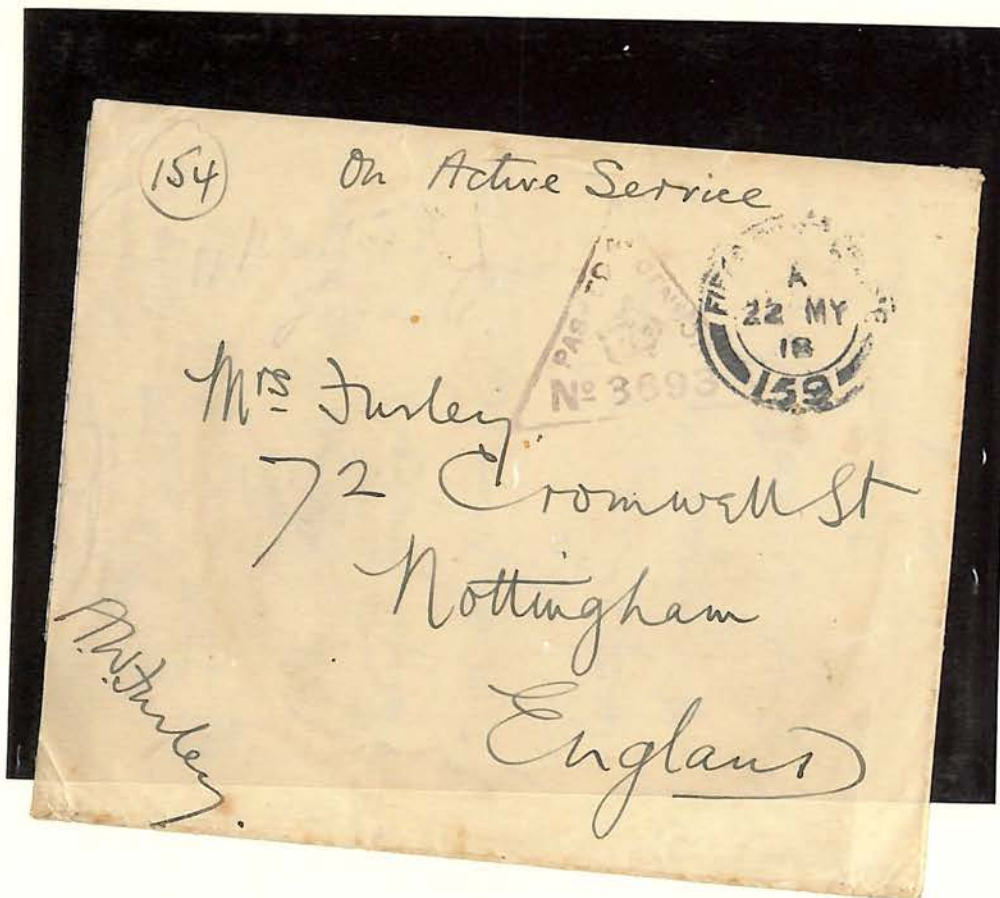 154
On Active Service
FIELD POST OFFICE
A
22 MY
18
159
PASSED BY CENSOR
No 3693
Mrs Furley
72 Cromwell St
Nottingham
England
A.W. Furley